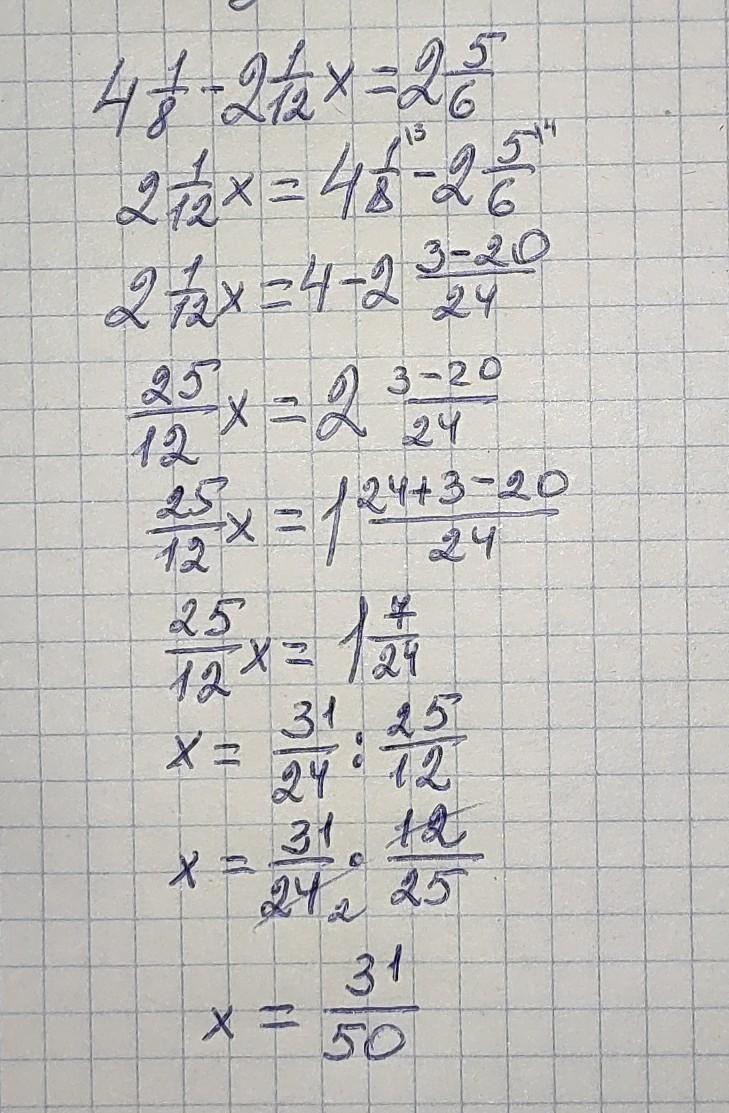 4 1/8 - 2 1/12 x = 2 5/6
2 1/12 x = 4 1/8 ^{13} - 2 5/6 ^{14}
2 1/12 x = 4 - 2 (3-20)/24
25/12 x = 2 (3-20)/24
25/12 x = 1 (24+3-20)/24
25/12 x = 1 7/24
x = 31/24 : 25/12
x = 31/24 2 · 12/25
x = 31/50